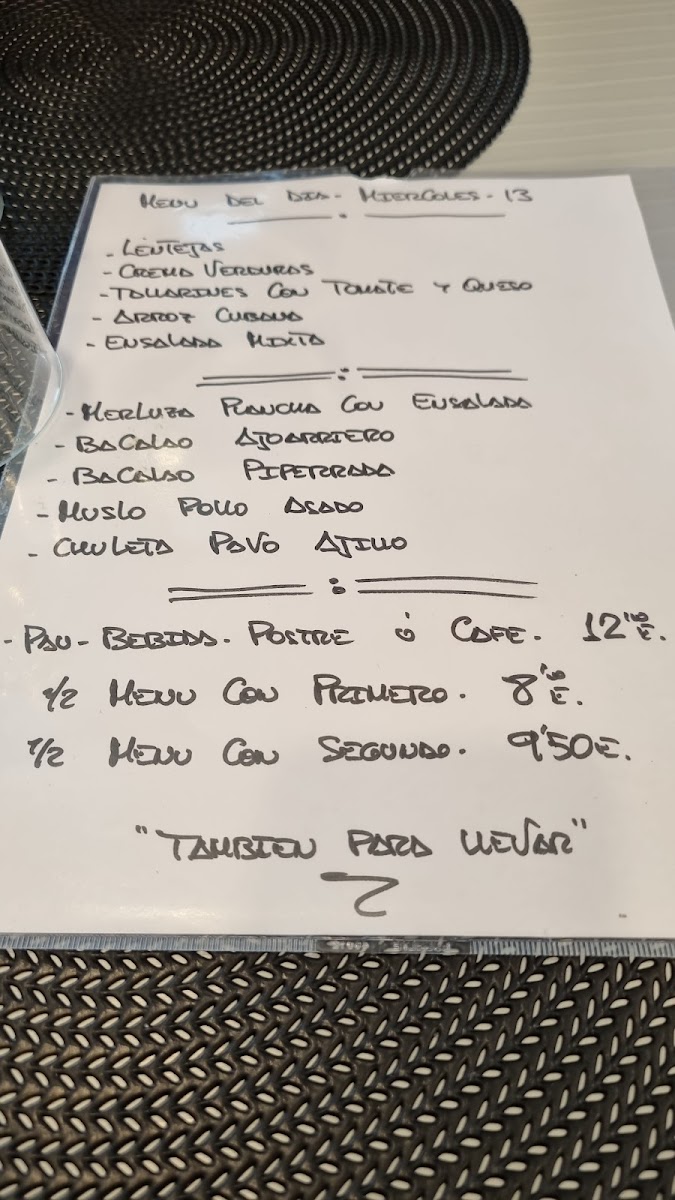 MENU DEL DIA - MIERCOLES - 13
- LENTEJAS
- CREMA VERDURAS
- TALLARINES CON TOMATE Y QUESO
- ARROZ CUBANA
- ENSALADA MIXTA
- MERLUZA PLANCHA CON ENSALADA
- BACALAO AJOARRIERO
- BACALAO PIPERRADA
- MUSLO POLLO ASADO
- CHULETA PAVO AJILLO
- PAN - BEBIDA. POSTRE Ó CAFE. 12 E.
1/2 MENU CON PRIMERO. 8 E.
1/2 MENU CON SEGUNDO. 9'50 E.
"TAMBIEN PARA LLEVAR"